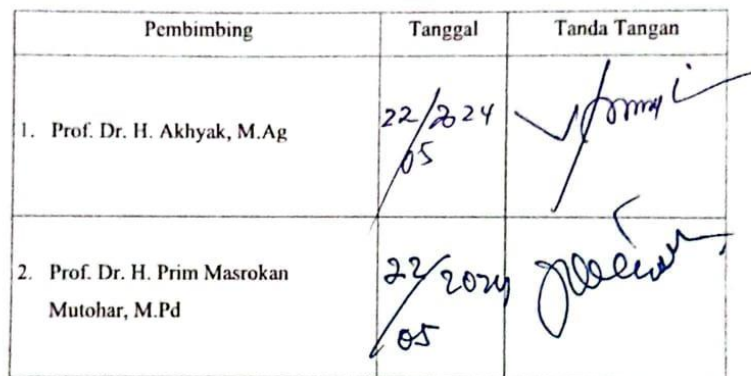 Pembimbing Tanggal Tanda Tangan
1. Prof. Dr. H. Akhyak, M.Ag 22/2024
05
2. Prof. Dr. H. Prim Masrokan 22/2024
Mutohar, M.Pd 05